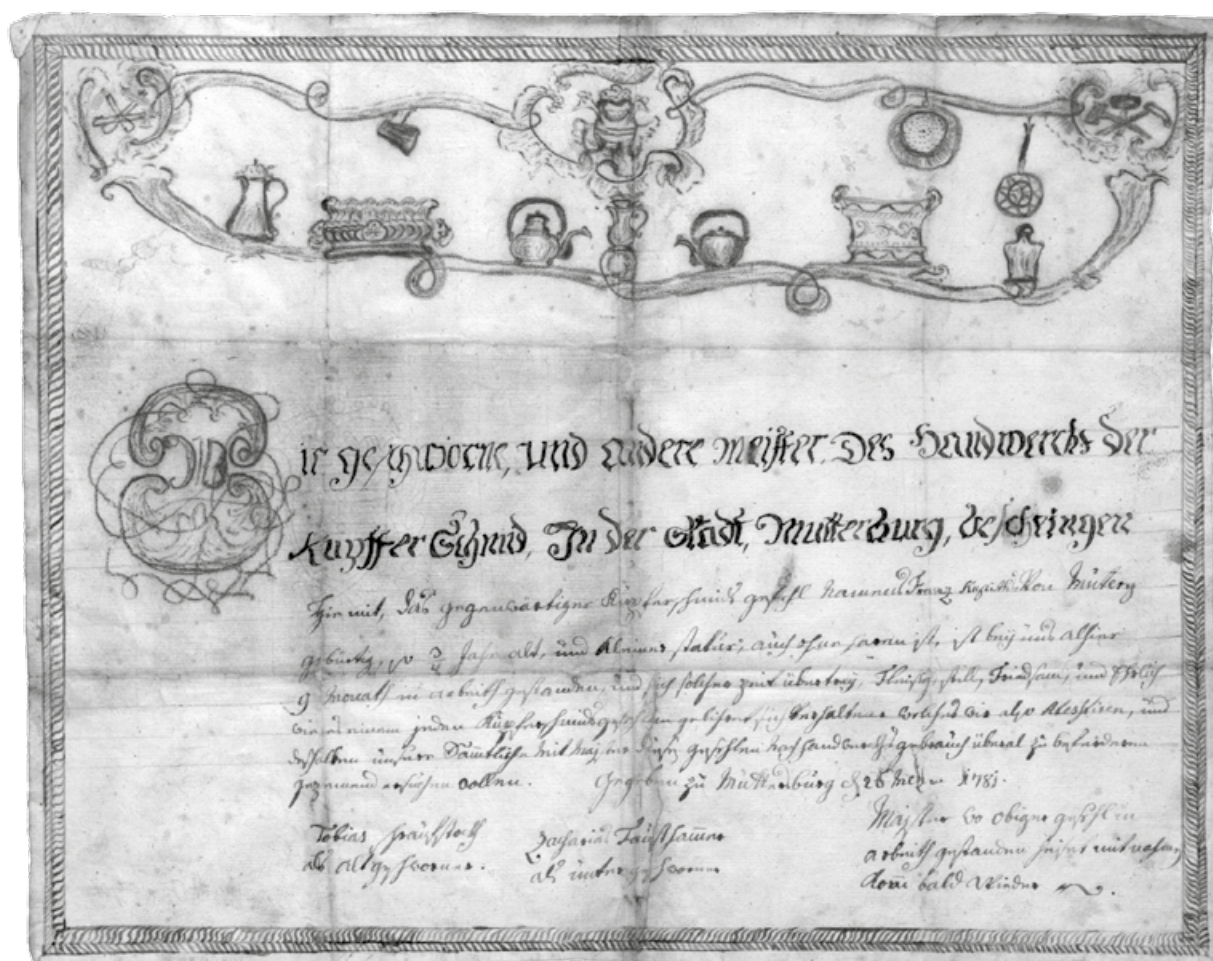 Wir geschworne, und andere Meister. Des Handwercks der
Kupffer Schmid, In der Stadt, Mutterburg, bescheingen
Hiemit, das gegenwärtiger Kupferschmids gesehl namens Franz von
gebürtig, so Jahr alt, und Kleiner statur, auch ohne haren ist, ist bey uns alhier
9 Monath in arbeith gestanden, und sich solcher zeit über treu, Fleissig, still, Friedsam, und Ehrlich
wie es einem jeden Kupferschmids gesehlen gebühret, verhalten, welches wir also und
deshalben unsere Sämtliche Mit Majster diesen gesehlen nach handwercks gebrauch überal zu beförderen
gezimend ersuchen wollen. Gegeben zu Mutterburg 26 1781.
Tobias
als altgeschworner.
Zacharias Fausthamer
als untergeschworner
Majster wo obiger gesehl in
arbeith gestanden heiset mit nahmen
Kom bald Wieder